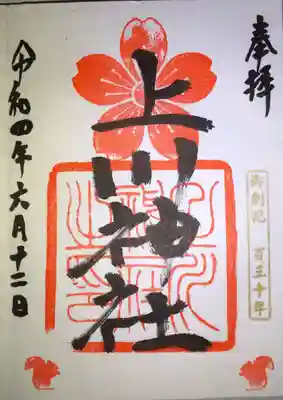 奉拝
御創祀 百三十年
上川神社
令和四年六月十二日